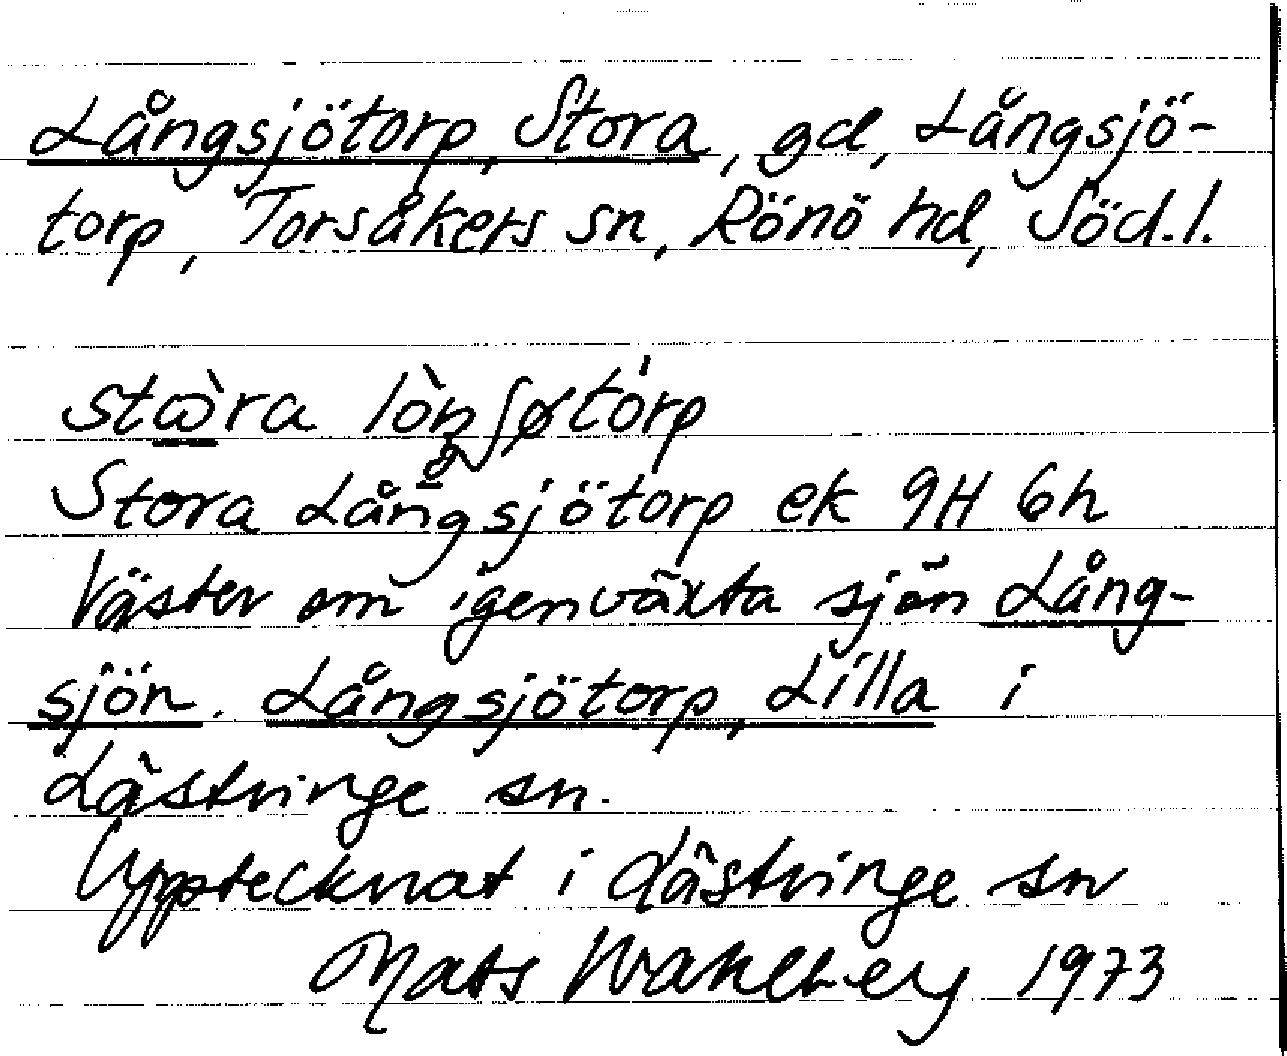 Långsjötorp, Stora, gd, Långsjö-
torp, Torsåkers sn, Rönö hd, Söd.l.
stɷ̀ra lòŋʃøtórp
Stora Långsjötorp ek 9H 6h
Väster om igenväxta sjön Lång-
sjön. Långsjötorp, Lilla i
Lästringe sn.
Upptecknat i Lästringe sn
Mats Wahlberg 1973